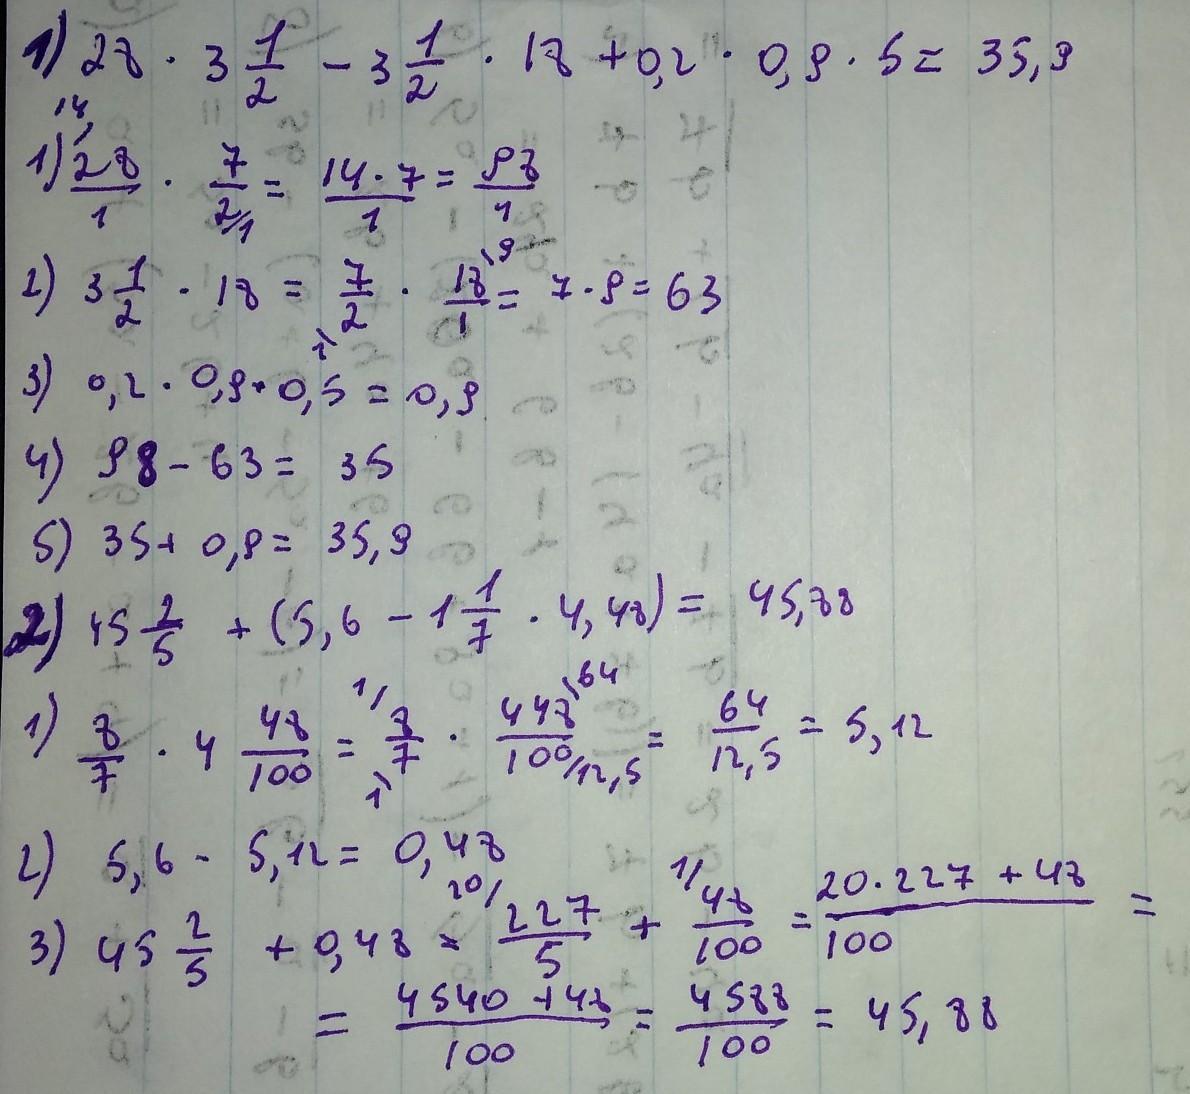 1) 28 · 3 1/2 - 3 1/2 · 18 + 0,2 · 0,9 · 5 = 35,9
1) 28\14/1 · 7/2\1 = 14·7/1 = 98/1
2) 3 1/2 · 18 = 7/2\1 · 18\9/1 = 7·9 = 63
3) 0,2 · 0,9 · 0,5 = 0,9
4) 98 - 63 = 35
5) 35 + 0,9 = 35,9
2) 45 2/5 + (5,6 - 1 1/7 · 4,48) = 45,88
1) 8/7 · 4 48/100 = 8\1/7\1 · 448\64/100\12,5 = 64/12,5 = 5,12
2) 5,6 - 5,12 = 0,48
3) 45 2/5 + 0,48 = 20/ 227/5 + 1/ 48/100 = 20·227+48/100 =
= 4540+48/100 = 4588/100 = 45,88